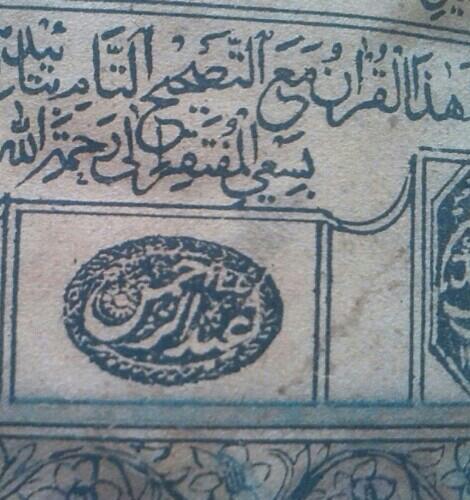 هَذَا الْقُرْآنُ مَعَ التَّصْحِيْحِ التَّامِ بِتَائِيْدِ
بِسَعْيِ الْمُفْتَقِرِ اِلٰى رَحْمَةِ اللّٰهِ
عبد الرحمن